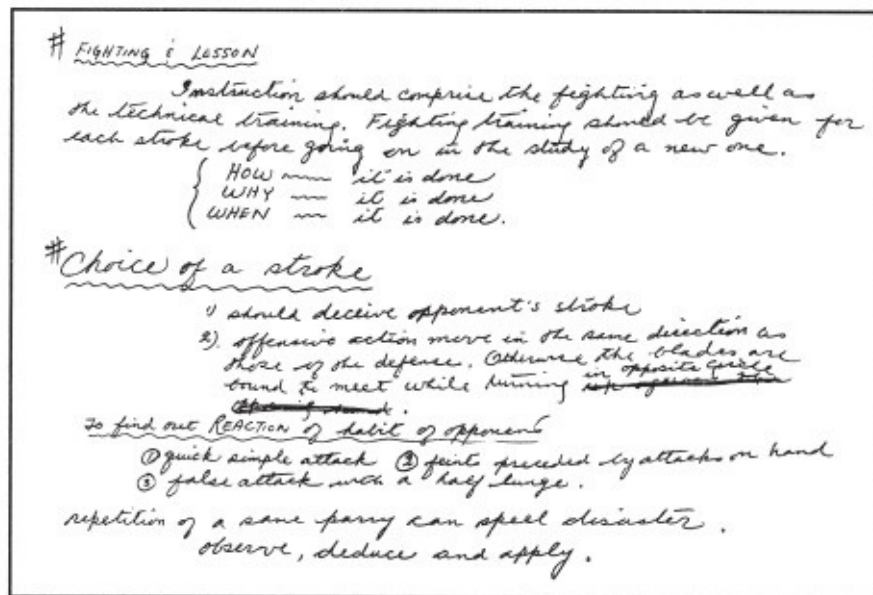 # FIGHTING & LESSON
Instruction should comprise the fighting as well as
the technical training. Fighting training should be given for
each stroke before going on in the study of a new one.
HOW — it is done
WHY — it is done
WHEN — it is done.
# Choice of a stroke
1) should deceive opponent's stroke
2). offensive action move in the same direction as
those of the defense. Otherwise the blades are
bound to meet while turning in opposite circle
.
To find out REACTION of habit of opponent
① quick simple attack ② feints preceded by attacks on hand
③ false attack with a half lunge.
repetition of a same parry can spell disaster.
observe, deduce and apply.